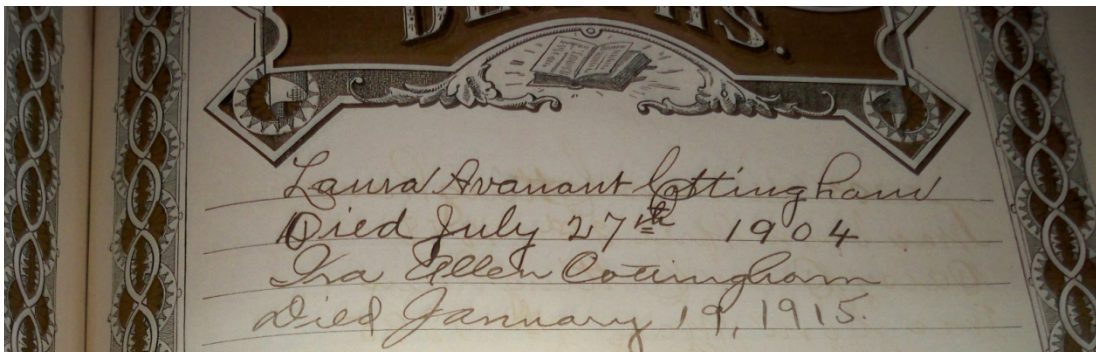 DEATHS.
Laura Avanant Cottingham
Died July 27th 1904
Ira Allen Cottingham
Died January 19, 1915.